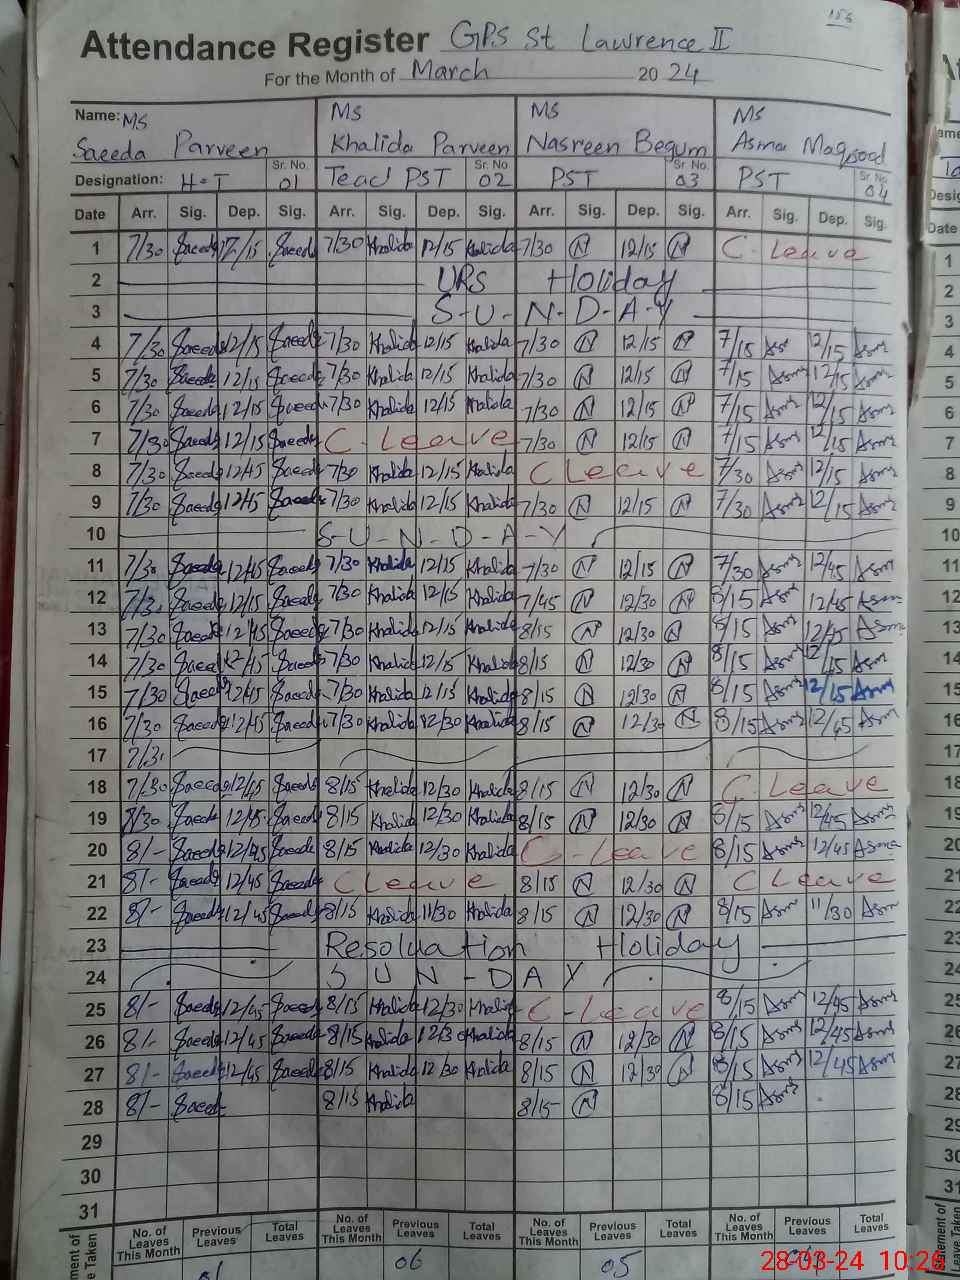 156
Attendance Register GPS St Lawrence II
For the Month of March 20 24
Name: MS Saeeda Parveen MS Khalida Parveen MS Nasreen Begum MS Asma Maqsood
Designation: H.T Sr. No. 01 Tead PST Sr. No 02 PST Sr. No. 03 PST Sr. No. 04
Date Arr. Sig. Dep. Sig. Arr. Sig. Dep. Sig. Arr. Sig. Dep. Sig. Arr. Sig. Dep. Sig.
1 7/30 Saeeda 12/15 Saeeda 7/30 Khalida 12/15 Khalida 7/30 N 12/15 N C. Leave
2 URS Holiday
3 S-U-N-D-A-Y
4 7/30 Saeeda 12/15 Saeeda 7/30 Khalida 12/15 Khalida 7/30 N 12/15 N 7/15 Asm 12/15 Asm
5 7/30 Saeeda 12/15 Saeeda 7/30 Khalida 12/15 Khalida 7/30 N 12/15 N 7/15 Asm 12/15 Asm
6 7/30 Saeeda 12/15 Saeeda 7/30 Khalida 12/15 Khalida 7/30 N 12/15 N 7/15 Asm 12/15 Asm
7 7/30 Saeeda 12/15 Saeeda C - Leave 7/30 N 12/15 N 7/15 Asm 12/15 Asm
8 7/30 Saeeda 12/45 Saeeda 7/30 Khalida 12/15 Khalida C Leave 7/30 Asm 12/15 Asm
9 7/30 Saeeda 12/45 Saeeda 7/30 Khalida 12/15 Khalida 7/30 N 12/15 N 7/30 Asm 12/15 Asm
10 S-U-N-D-A-Y
11 7/30 Saeeda 12/45 Saeeda 7/30 Khalida 12/15 Khalida 7/30 N 12/15 N 7/30 Asm 12/45 Asm
12 7/30 Saeeda 12/15 Saeeda 7/30 Khalida 12/15 Khalida 7/45 N 12/30 N 8/15 Asm 12/45 Asm
13 7/30 Saeeda 12/45 Saeeda 7/30 Khalida 12/15 Khalida 8/15 N 12/30 N 8/15 Asm 12/45 Asm
14 7/30 Saeeda 12/45 Saeeda 7/30 Khalida 12/15 Khalida 8/15 N 12/30 N 8/15 Asm 12/45 Asm
15 7/30 Saeeda 12/45 Saeeda 7/30 Khalida 12/15 Khalida 8/15 N 12/30 N 8/15 Asm 12/15 Asm
16 7/30 Saeeda 12/45 Saeeda 7/30 Khalida 12/30 Khalida 8/15 N 12/30 N 8/15 Asm 12/45 Asm
17 7/3
18 7/30 Saeeda 12/45 Saeeda 8/15 Khalida 12/30 Khalida 8/15 N 12/30 N C. Leave
19 8/30 Saeeda 12/45 Saeeda 8/15 Khalida 12/30 Khalida 8/15 N 12/30 N 8/15 Asm 12/45 Asm
20 8/- Saeeda 12/45 Saeeda 8/15 Khalida 12/30 Khalida C - Leave 8/15 Asm 12/45 Asma
21 8/- Saeeda 12/45 Saeeda C Leave 8/15 N 12/30 N C Leave
22 8/- Saeeda 12/45 Saeeda 8/15 Khalida 11/30 Khalida 8/15 N 12/30 N 8/15 Asm 11/30 Asm
23 Resoluation Holiday
24 S U N - D A Y
25 8/- Saeeda 12/45 Saeeda 8/15 Khalida 12/30 Khalida C - Leave 8/15 Asm 12/45 Asm
26 8/- Saeeda 12/45 Saeeda 8/15 Khalida 12/30 Khalida 8/15 N 12/30 N 8/15 Asm 12/45 Asm
27 8/- Saeeda 12/45 Saeeda 8/15 Khalida 12/30 Khalida 8/15 N 12/30 N 8/15 Asm 12/45 Asm
28 8/- Saeed 8/15 Khalida 8/15 N 8/15 Asm
29
30
31
No. of Leaves This Month Previous Leaves Total Leaves No. of Leaves This Month Previous Leaves Total Leaves No. of Leaves This Month Previous Leaves Total Leaves No. of Leaves This Month Previous Leaves Total Leaves
01 06 05
28-03-24 10:26